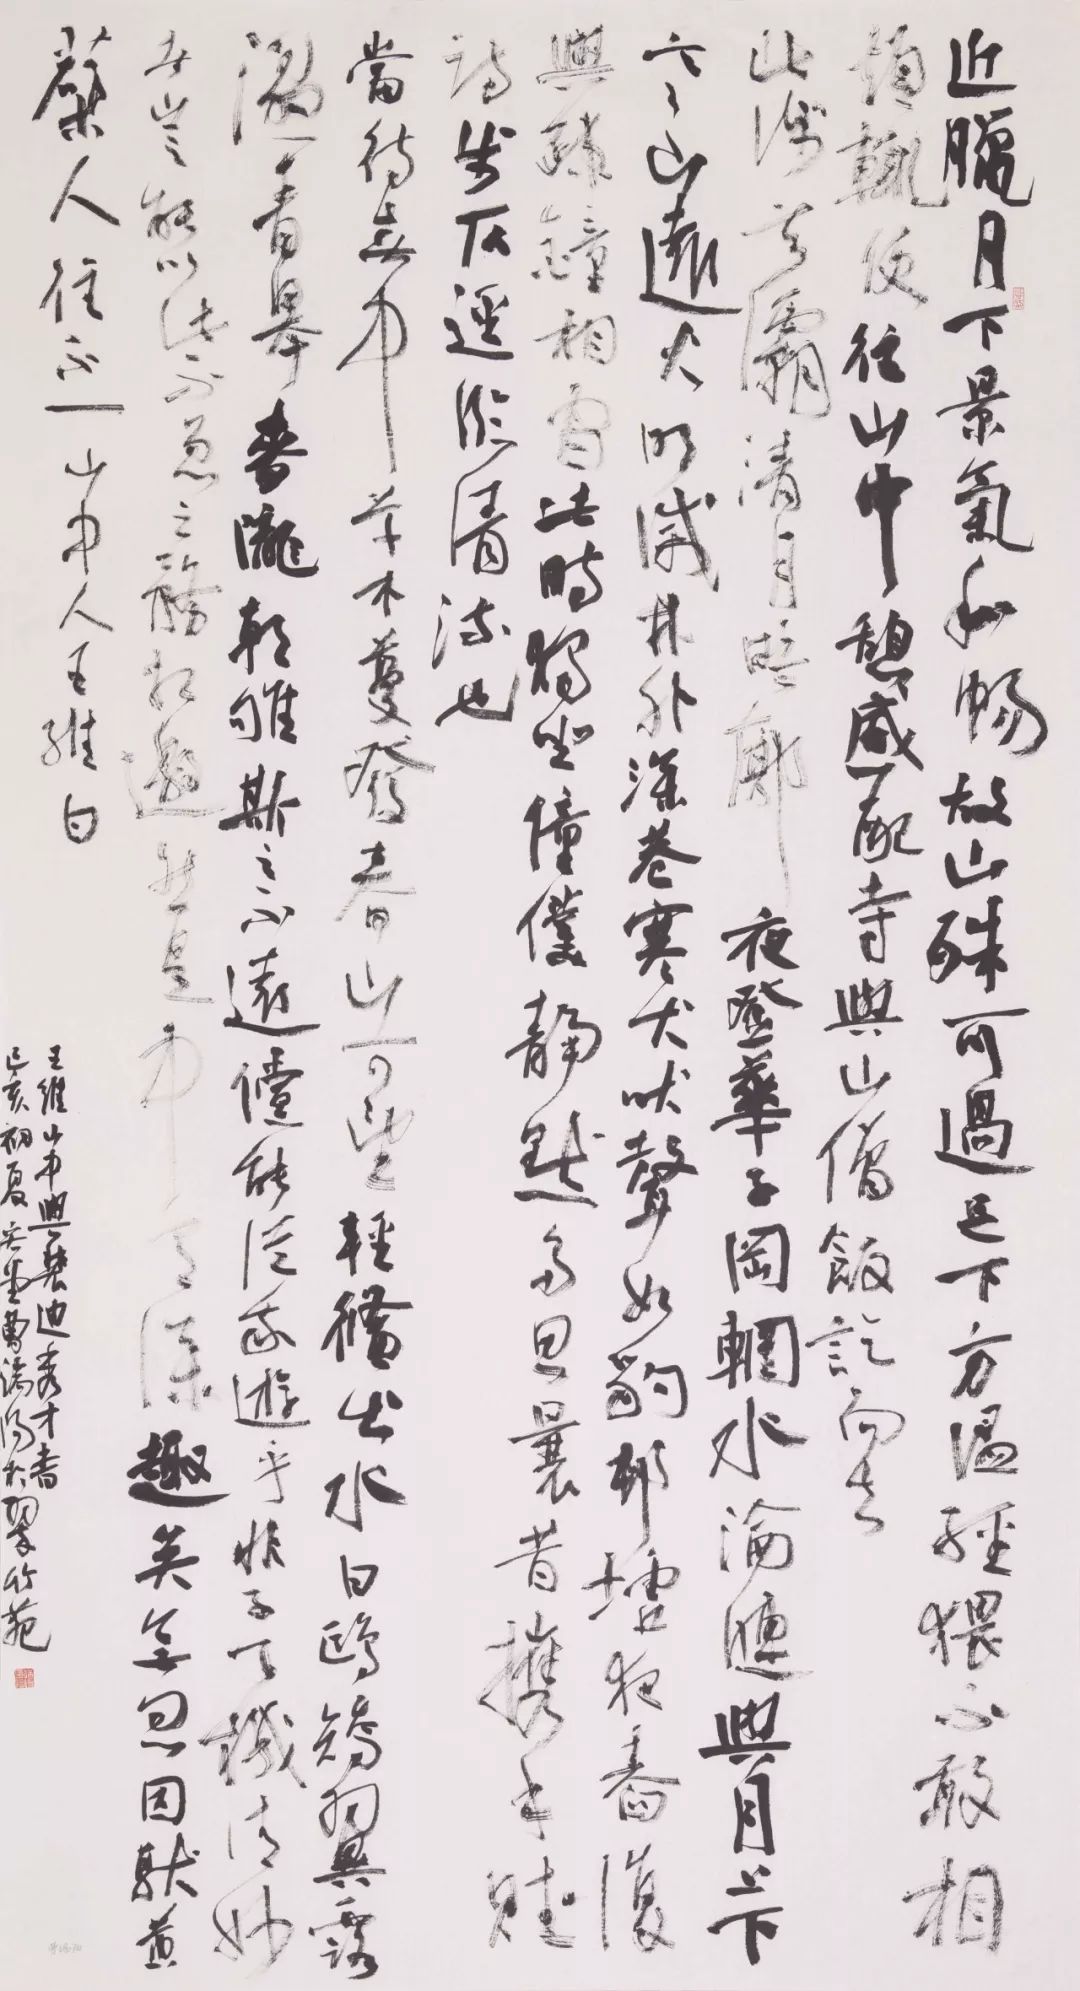 近臘月下景氣和暢故山殊可過足下方溫經猥不敢相
煩輒便往山中憩感配寺與山僧飯訖而去
北涉玄灞清月映郭夜登華子岡輞水淪漣與月上下
寒山遠火明滅林外深巷寒犬吠聲如豹村墟夜舂復
與疎鐘相間此時獨坐僮僕靜默多思曩昔攜手賦
詩步仄逕臨清流也
當待春中草木蔓發春山可望輕鯈出水白鷗矯翼露
濕青皋麥隴朝雊斯之不遠儻能從我遊乎非子天機清妙
者豈能以此不急之務相邀然是中有深趣矣無忽因馱黃
蘗人往不一山中人王維白
王維山中與裴迪秀才書
己亥初夏堂曹端陽於翠竹苑